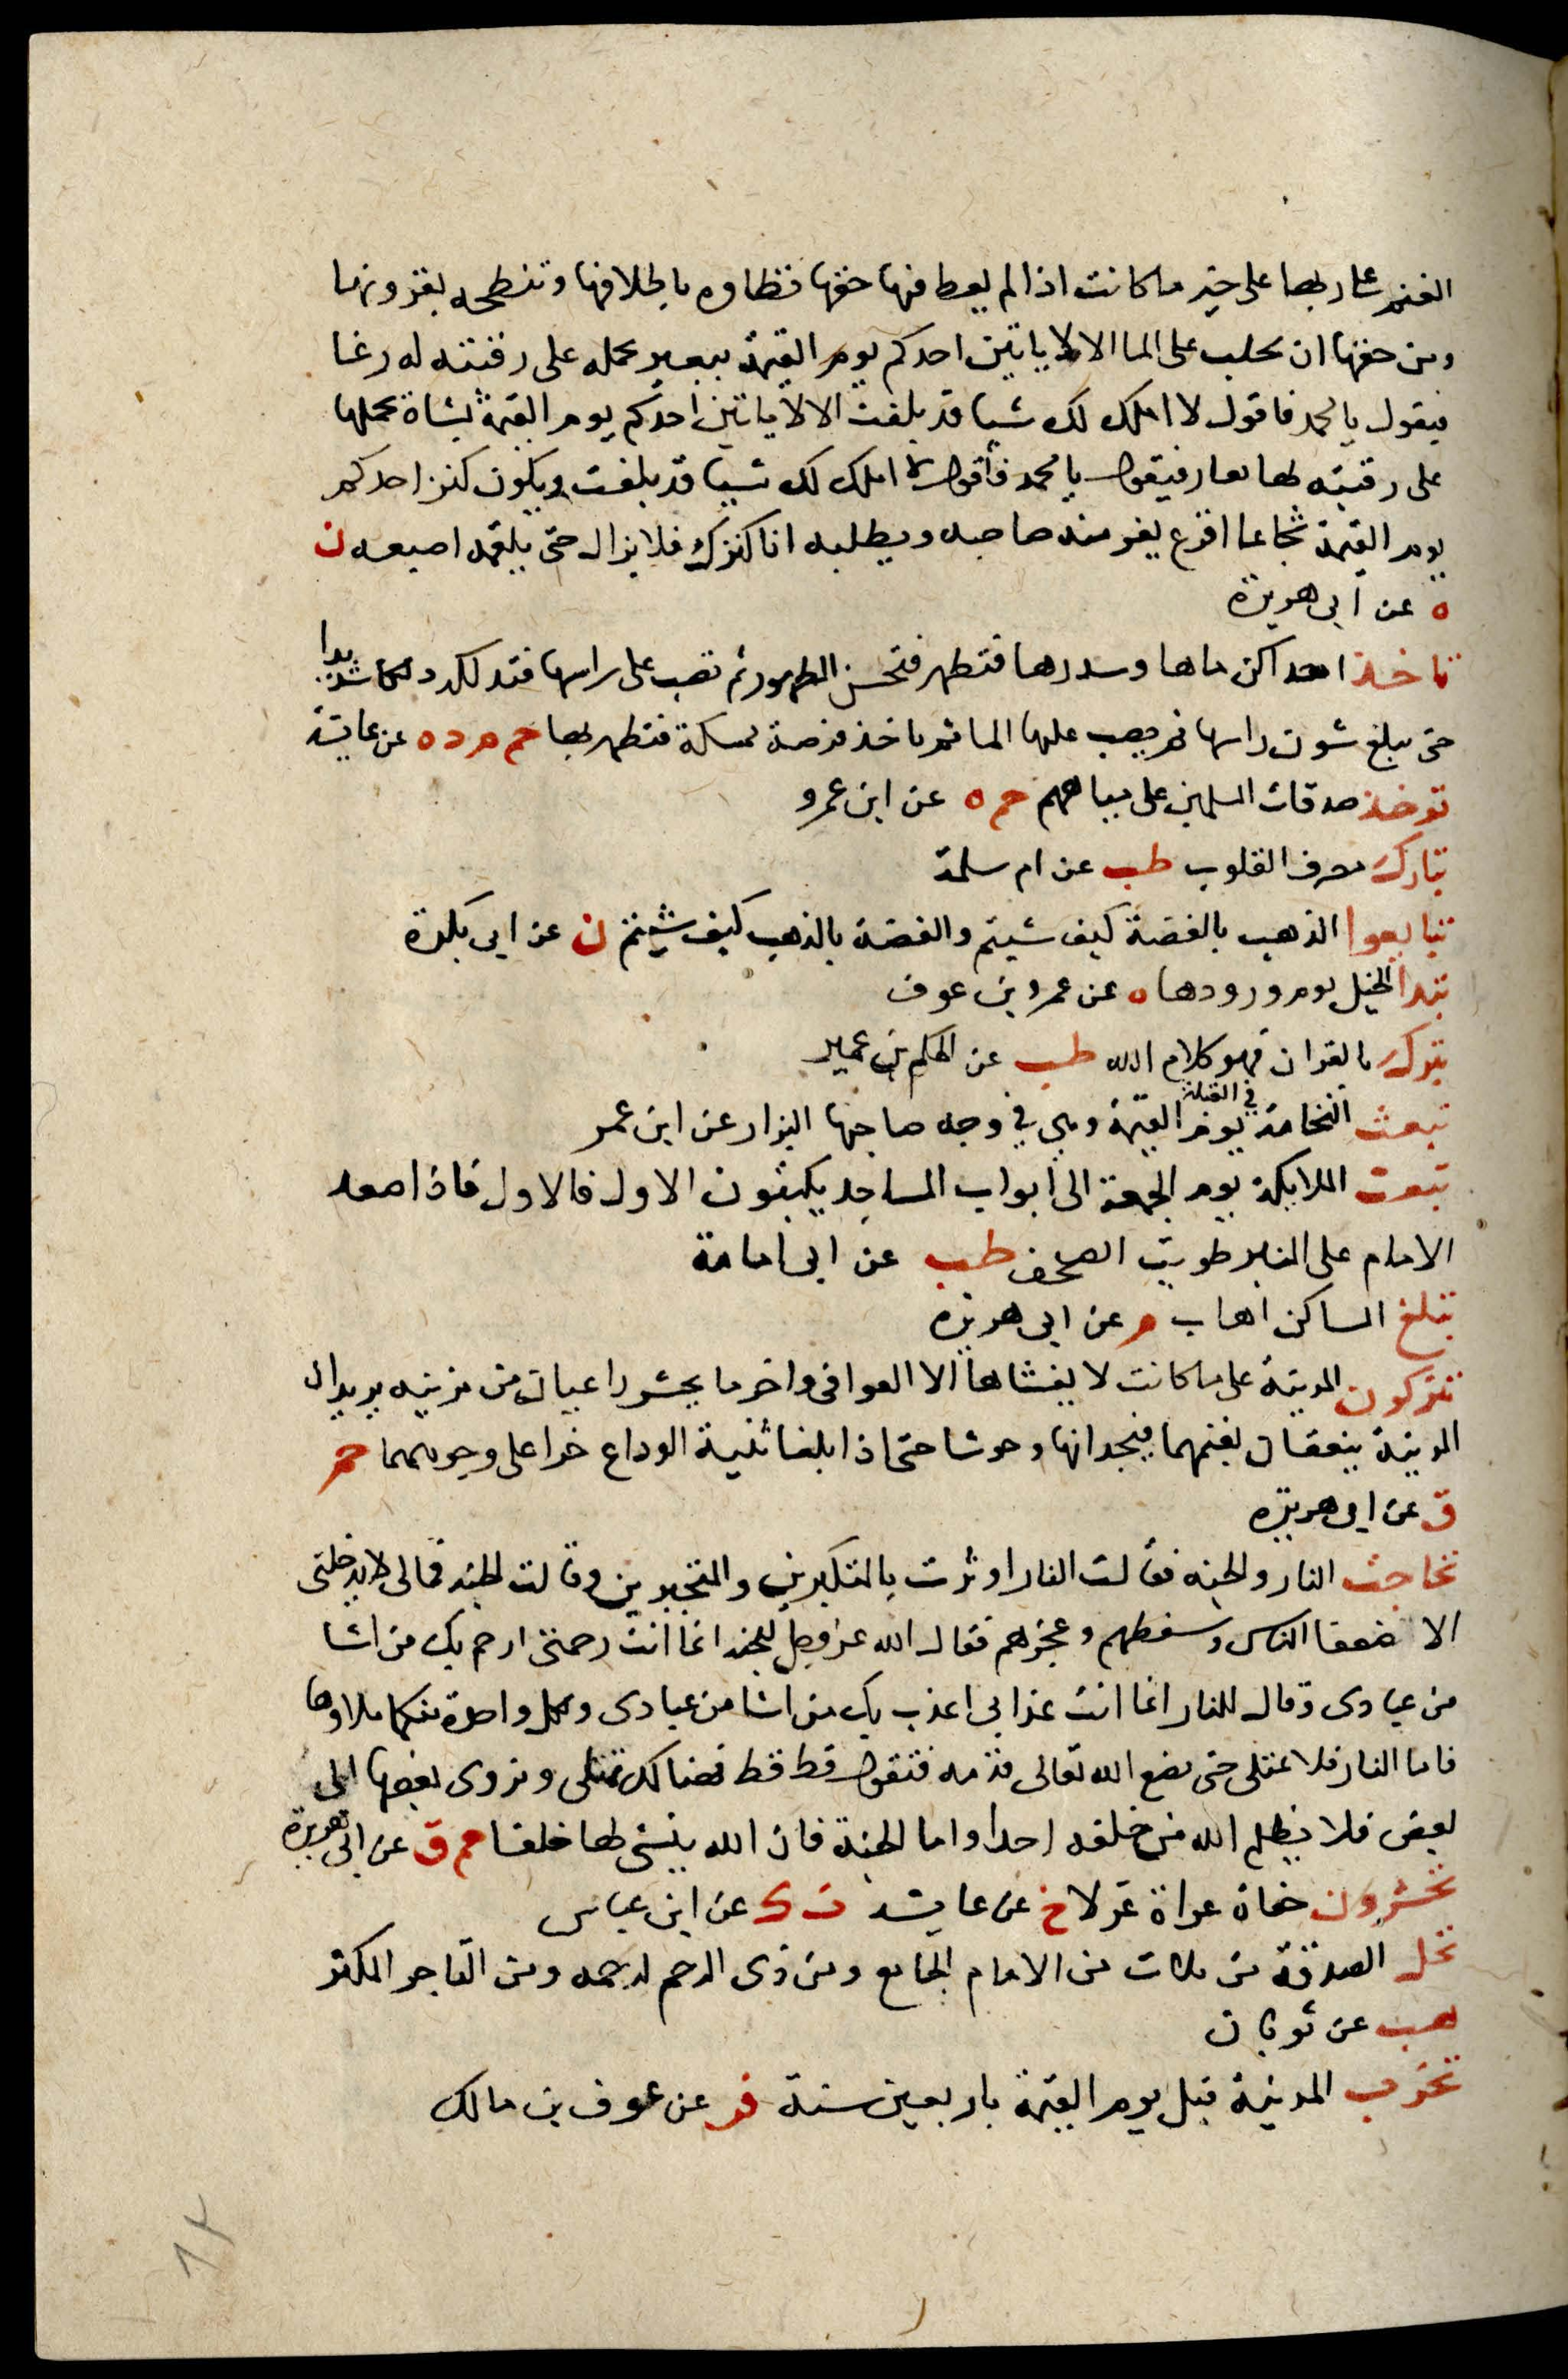 الغنم على ربها على خير ما كانت اذا لم يعط فيها حقها فتطاوه باظلافها وتنطحه بقرونها
ومن حقها ان تحلب على الما الا لا ياتين احدكم يوم القيمة ببعير يحمله على رقبته له رغا
فيقول يا محمد فاقول لا املك لك شيا قد بلغت الا لا ياتين احدكم يوم القيمة بشاة يحملها
على رقبته لها يعار فيقول يا محمد فأقول لا املك لك شيا قد بلغت ويكون كنز احدكم
يوم القيمة شجاعا اقرع يفر منه صاحبه ويطلبه انا كنزك فلا يزال حتى يلقمه اصبعه ن
ه عن ابى هريرة
تاخذ احداكن ماها وسدرها فتطهر فتحسن الطهور ثم تصب على راسها فتدلكه دلكا شديدا
حتى يبلغ شون راسها ثم يصب عليها الما ثم تاخذ فرصة ممسكة فتطهر بها حم م د ه عن عايشة
توخذ صدقات المسلمين على مياههم حم ه عن ابن عمرو
تبارك مصرف القلوب طب عن ام سلمة
تبايعوا الذهب بالفضة كيف شيتم والفضة بالذهب كيف شيتم ن عن ابى بكرة
تبدا الخيل يوم ورودها ه عن عمرو بن عوف
تبرك بالقران فهو كلام الله طب عن الحكم بن عمير
تبعث النخامة في القبلة يوم القيمة وهي في وجه صاحبها البزار عن ابن عمر
تبعث الملايكة يوم الجمعة الى ابواب المساجد يكتبون الاول فالاول فاذا صعد
الامام على المنبر طويت الصحف طب عن ابى امامة
تبلغ المساكن اهاب م عن ابى هريرة
تتركون المدينة على ما كانت لا يغشاها الا العوافى واخر ما يحشر راعيان من مزينه يريدان
المدينة ينعقان بغنمهما فيجدانها وحوشا حتى اذا بلغا ثنية الوداع خرا على وجوههما حم
ق عن ابى هريرة
تحاجت النار والجنه فقالت النار اوثرت بالمتكبرين والمتجبرين وقالت الجنه فمالى لا يدخلنى
الا ضعفا الناس وسقطهم وعجزهم فقال الله عز وجل للجنه انما انت رحمتى ارحم بك من اشا
من عبادى وقال للنار انما انت عذابى اعذب بك من اشا من عبادى ولكل واحدة منكما ملاوها
فاما النار فلا تمتلى حتى يضع الله تعالى قدمه فتقول قط قط فهنالك تمتلى ويزوى بعضها الى
بعض فلا يظلم الله من خلقه احدا واما الجنة فان الله ينشى لها خلقا حم ق عن ابى هريرة
تحشرون حفاة عراة غرلا خ عن عايشه ت ك عن ابن عباس
تحل الصدقة من ثلاث من الامام الجامع ومن ذى الرحم لرحمه ومن التاجر المكثر
هب عن ثوبان
تخرب المدينة قبل يوم القيمة باربعين سنة فر عن عوف بن مالك